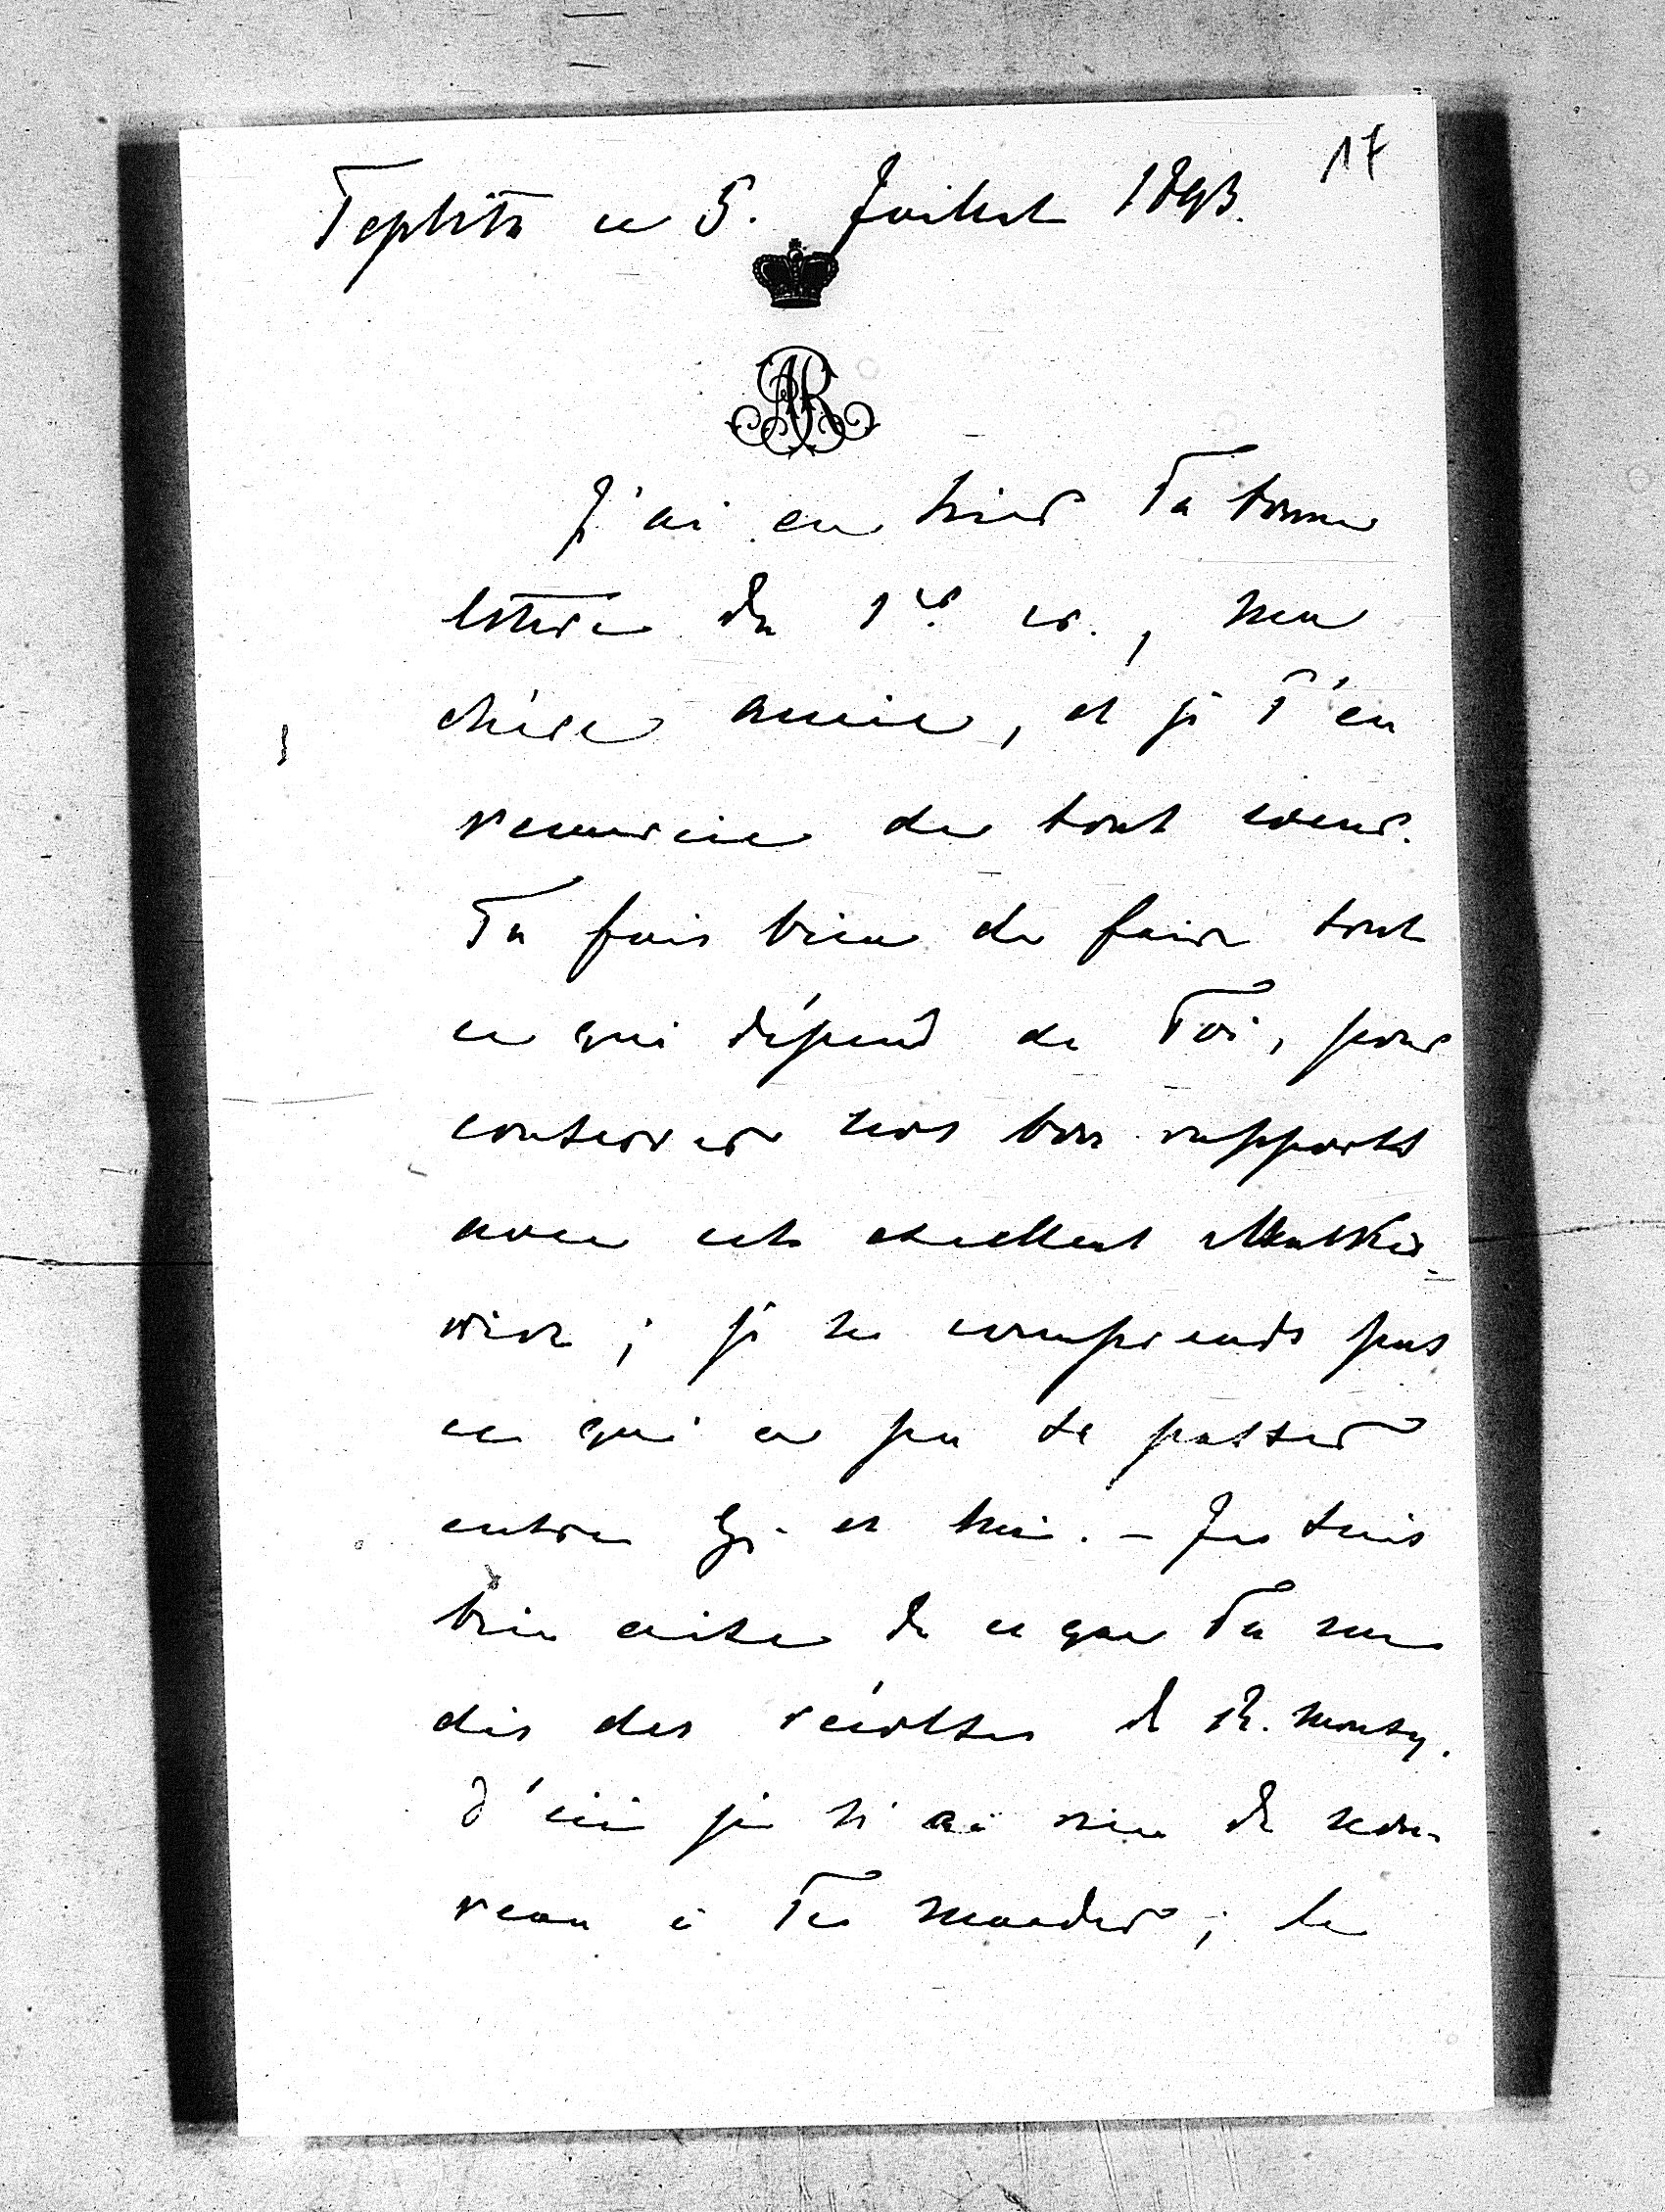 17
Teplitz ce 5. Juillet 1893.
AR
J'ai eu hier Ta bonne
lettre du 1er cr., ma
chère amie, et je T'en
remercie de tout coeur.
Tu fais bien de faire tout
ce qui dépend de Toi, pour
conserver nos bons rapports
avec cet excellent
; je ne comprends pas
ce qui a pu se passer
entre et lui. - Je suis
bien aise de ce que Tu me
dis des récoltes de
d'ici je n'ai rien de nou-
veau à Te mander; le